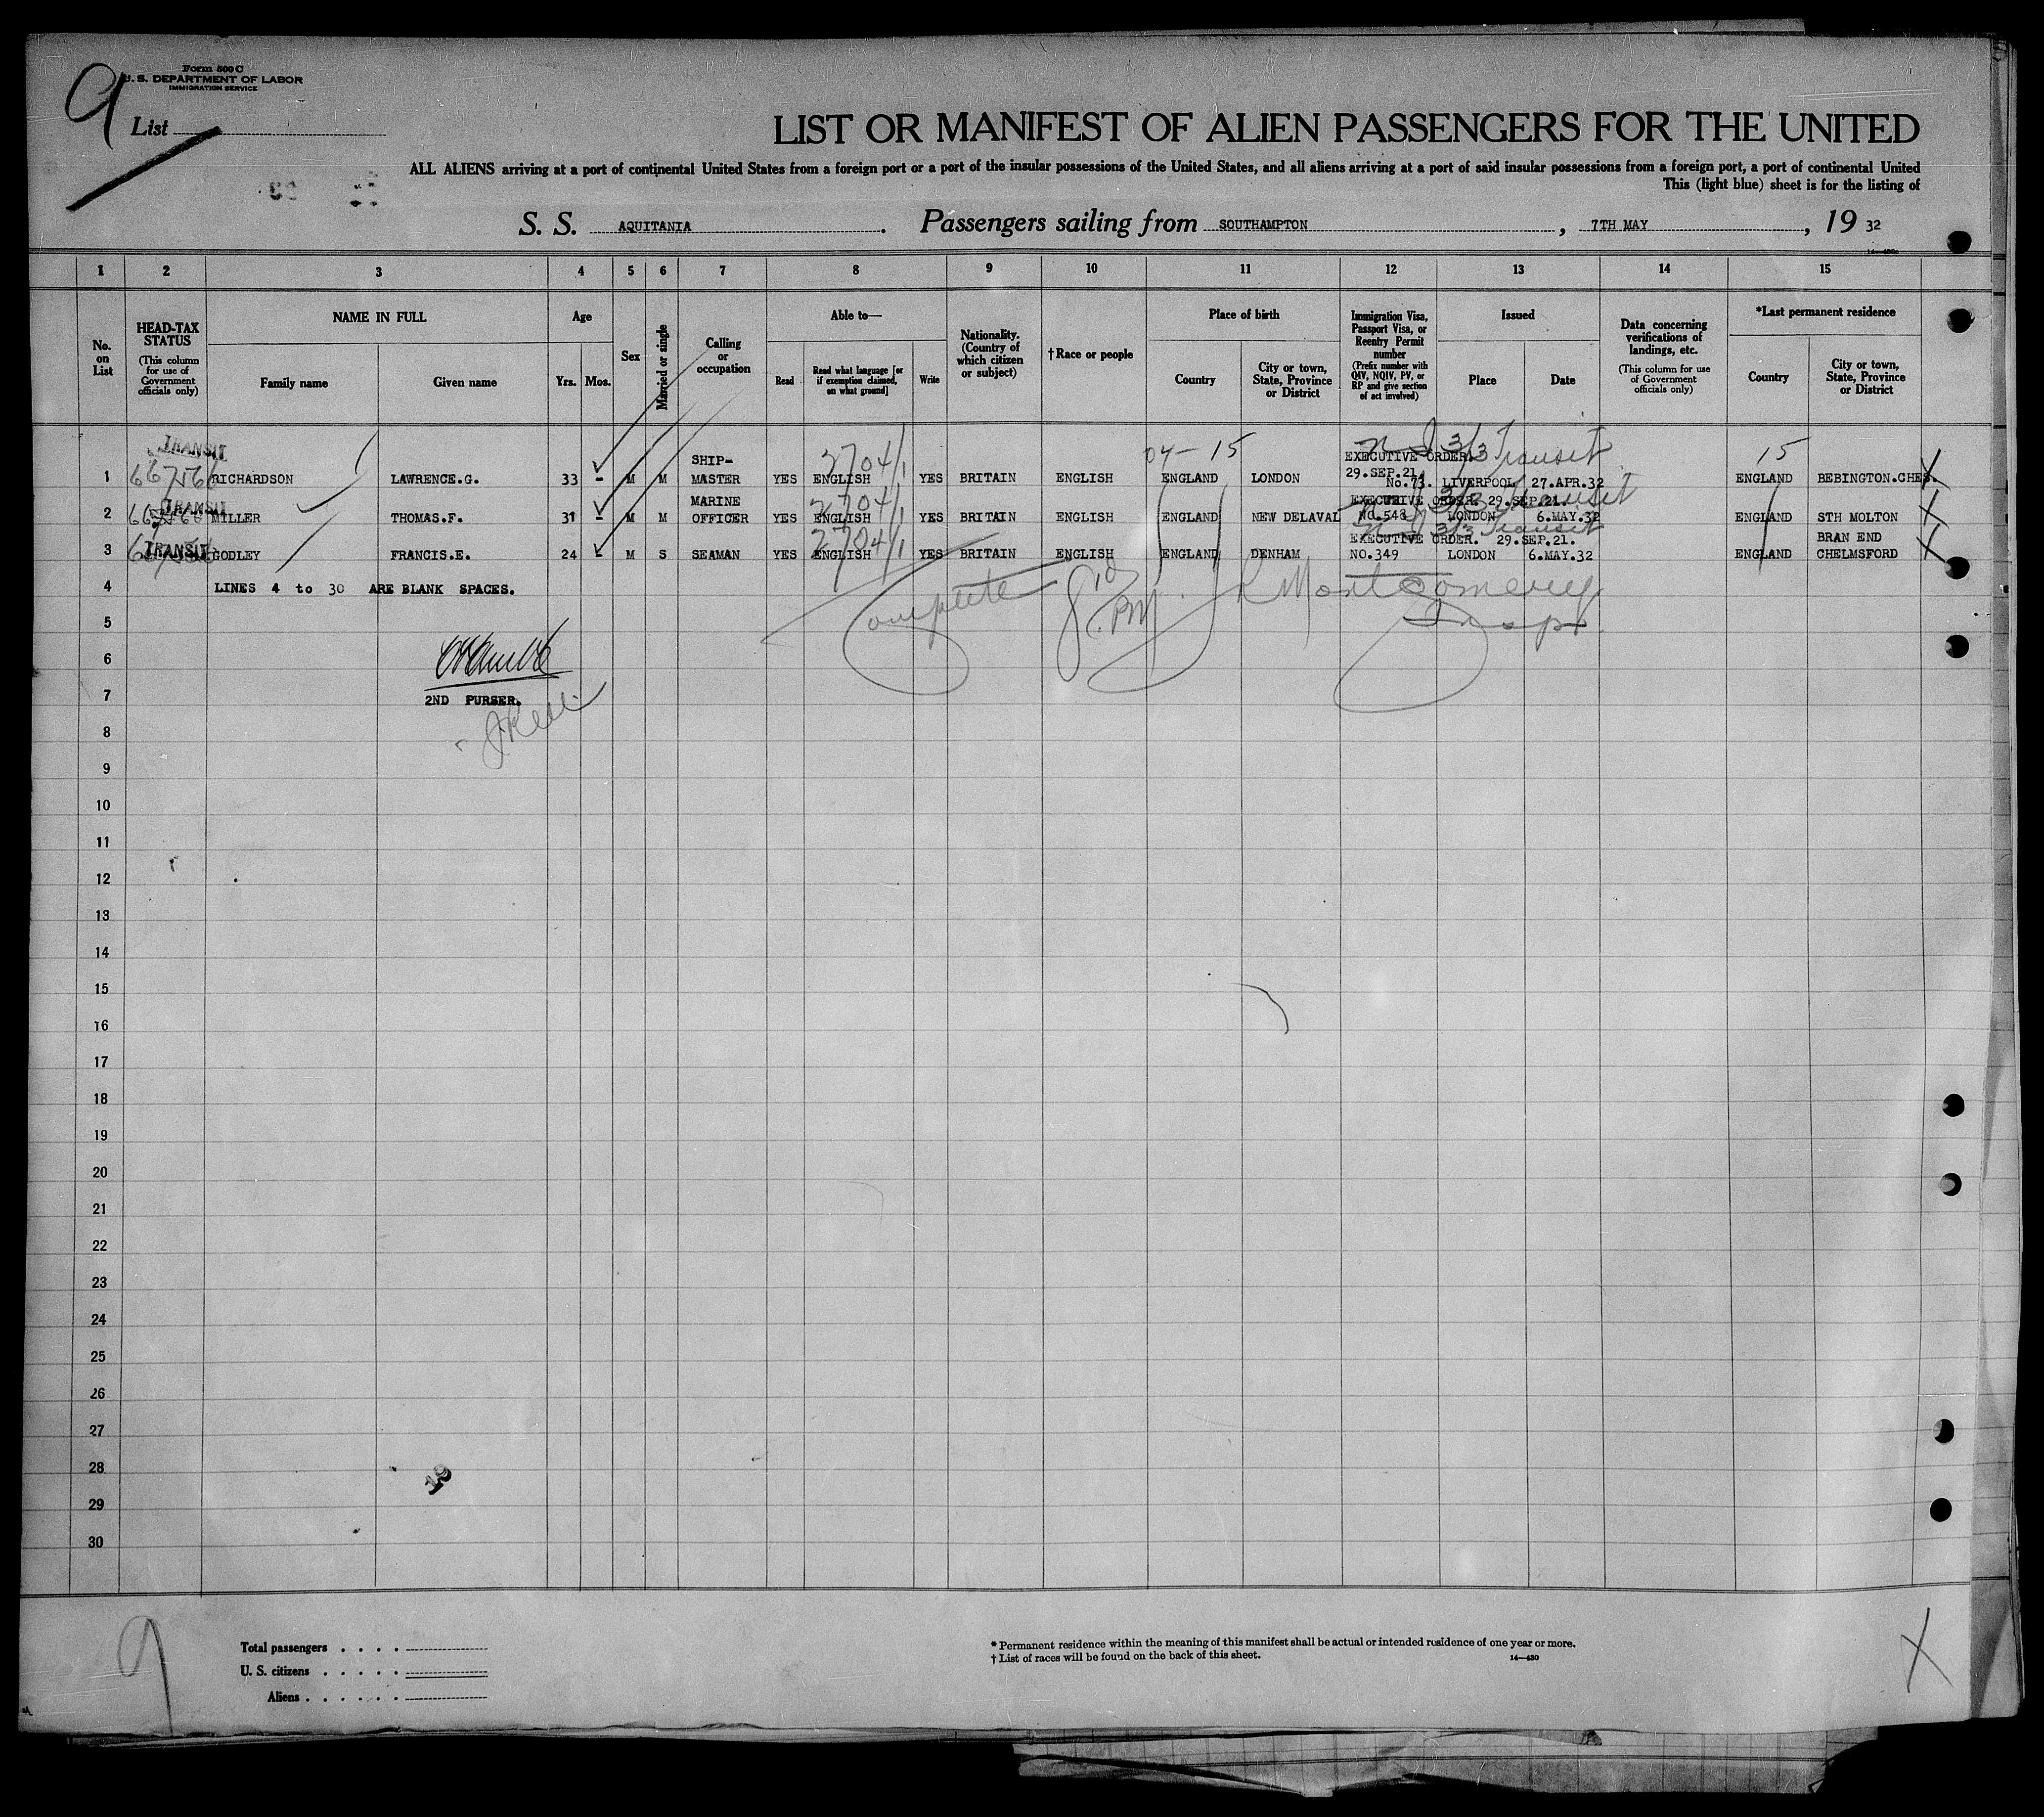 9
Form 500 C
U. S. DEPARTMENT OF LABOR
IMMIGRATION SERVICE
List
LIST OR MANIFEST OF ALIEN PASSENGERS FOR THE UNITED
ALL ALIENS arriving at a port of continental United States from a foreign port or a port of the insular possessions of the United States, and all aliens arriving at a port of said insular possessions from a foreign port, a port of continental United
This (light blue) sheet is for the listing of
S. S. AQUITANIA . Passengers sailing from SOUTHAMPTON , 7TH MAY , 19 32
1 2 3 4 5 6 7 8 9 10 11 12 13 14 15
No. on List
HEAD-TAX STATUS (This column for use of Government officials only)
NAME IN FULL
Family name Given name
Age
Yrs. Mos.
Sex
Married or single
Calling or occupation
Able to—
Read Read what language [or if exemption claimed, on what ground] Write
Nationality. (Country of which citizen or subject)
† Race or people
Place of birth
Country City or town, State, Province or District
Immigration Visa, Passport Visa, or Reentry Permit number (Prefix number with QIV, NQIV, PV, or RP and give section of act involved)
Issued
Place Date
Data concerning verifications of landings, etc. (This column for use of Government officials only)
*Last permanent residence
Country City or town, State, Province or District
TRANSIT 2704/1 04-15 3/3 Transit 15
SHIP- EXECUTIVE ORDER.
29.SEP.21.
1 RICHARDSON LAWRENCE.G. 33 - M M MASTER YES ENGLISH YES BRITAIN ENGLISH ENGLAND LONDON No.73. LIVERPOOL 27.APR.32 ENGLAND BEBINGTON.CHES.
TRANSIT MARINE 2704/1 EXECUTIVE ORDER. 29.SEP.21. 3/3 Transit
2 MILLER THOMAS.F. 31 - M M OFFICER YES ENGLISH YES BRITAIN ENGLISH ENGLAND NEW DELAVAL NO.548 LONDON 6.MAY.32 ENGLAND STH MOLTON
TRANSIT 2704/1 3/3 Transit
EXECUTIVE ORDER. 29.SEP.21. BRAN END
3 GODLEY FRANCIS.E. 24 - M S SEAMAN YES ENGLISH YES BRITAIN ENGLISH ENGLAND DENHAM NO.349 LONDON 6.MAY.32 ENGLAND CHELMSFORD
4 LINES 4 to 30 ARE BLANK SPACES.
Complete PM Montgomery
Insp
5
6
7 2ND PURSER.
8
9
10
11
12
13
14
15
16
17
18
19
20
21
22
23
24
25
26
27
28
29
30
9
Total passengers . . . .
U. S. citizens . . . . .
Aliens . . . . . .
* Permanent residence within the meaning of this manifest shall be actual or intended residence of one year or more.
† List of races will be found on the back of this sheet. 14—430
X